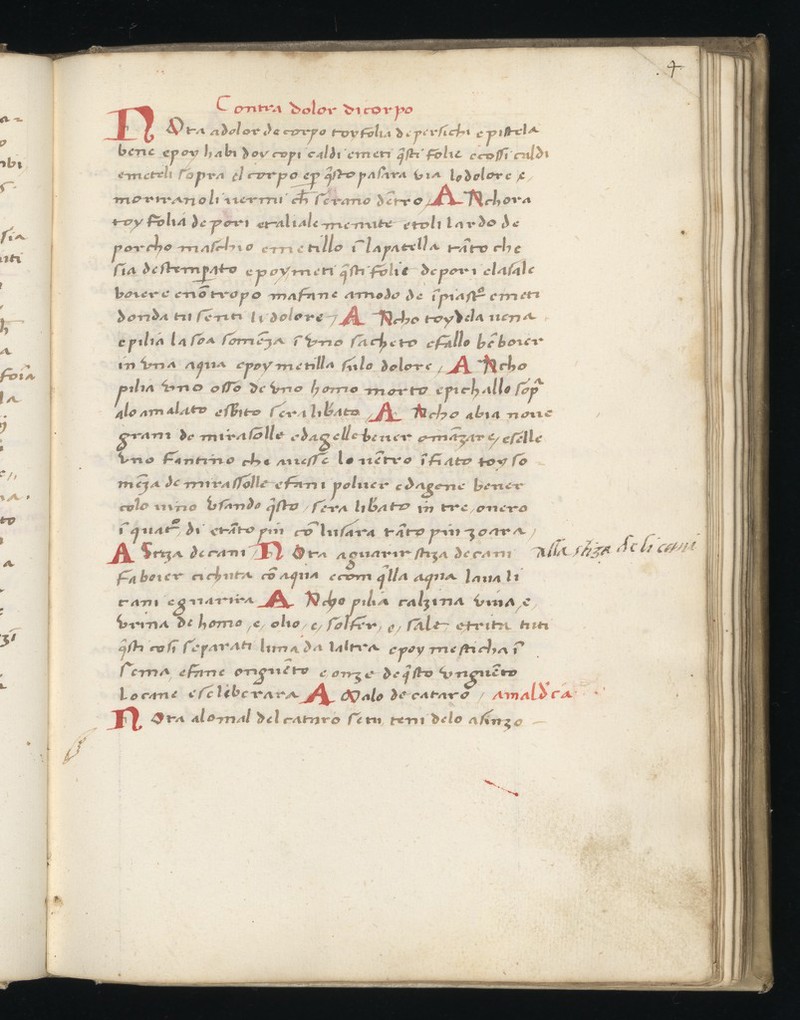 4
Contra dolor di corpo
NOta a dolor de corpo toy folia de persichi e pistela
bene epoy habi doy copi caldi emeti q̄sti folie ecossi caldi
emeteli sopra el corpo ep̄ q̄sto pasara via lo dolore e
moriranoli uermi ch̄ serano dētro, ANchora
toy folia de pori etaliale menute etoli lardo de
porcho maschio emetillo ī la patella tāto che
sia destemperato epoy meti q̄sti folie de pori elasale
boiere e nō tropo ma fane amodo de īpiastro emeti
donda tu senti li dolore, ANcho toy dela uena
epilia la soa somēza ī vno sacheto efallo bē boier
in vna aqua epoy metilla sulo dolore, ANcho
pilia vno osso de vno homo morto epichallo sopra
alo amalato esbito sera libato, ANcho abia noue
grani de mirasolle edagelle beuer o māzare, eselle
vno fantino che auesse lo uētro īfiato toy so
mēza de mirassolle efani poluer edagene beuer
colo uino vsando q̄sto, sera libato in tre, onero
ī quatro, di etāto piu cō lusara tāto piu zoara,
A Stiza de cani, NOta aguarir stiza de cani
alla stiza de li cani
fa boier cichuta cō aqua ecom q̄lla aqua laua li
cani eguarira ANcho pilia calzina viua, e,
vrina de homo, e, olio, e, solfer, e, sale etrita tuti
q̄sti cosi separati luna da laltra epoy mesticha ī
sema, efane onguēto eonze de q̄sto vnguēto
lo cane ese leberara A Malo de cataro, amal d'ca
NOta alo mal del cataro se tu teni delo asinzo